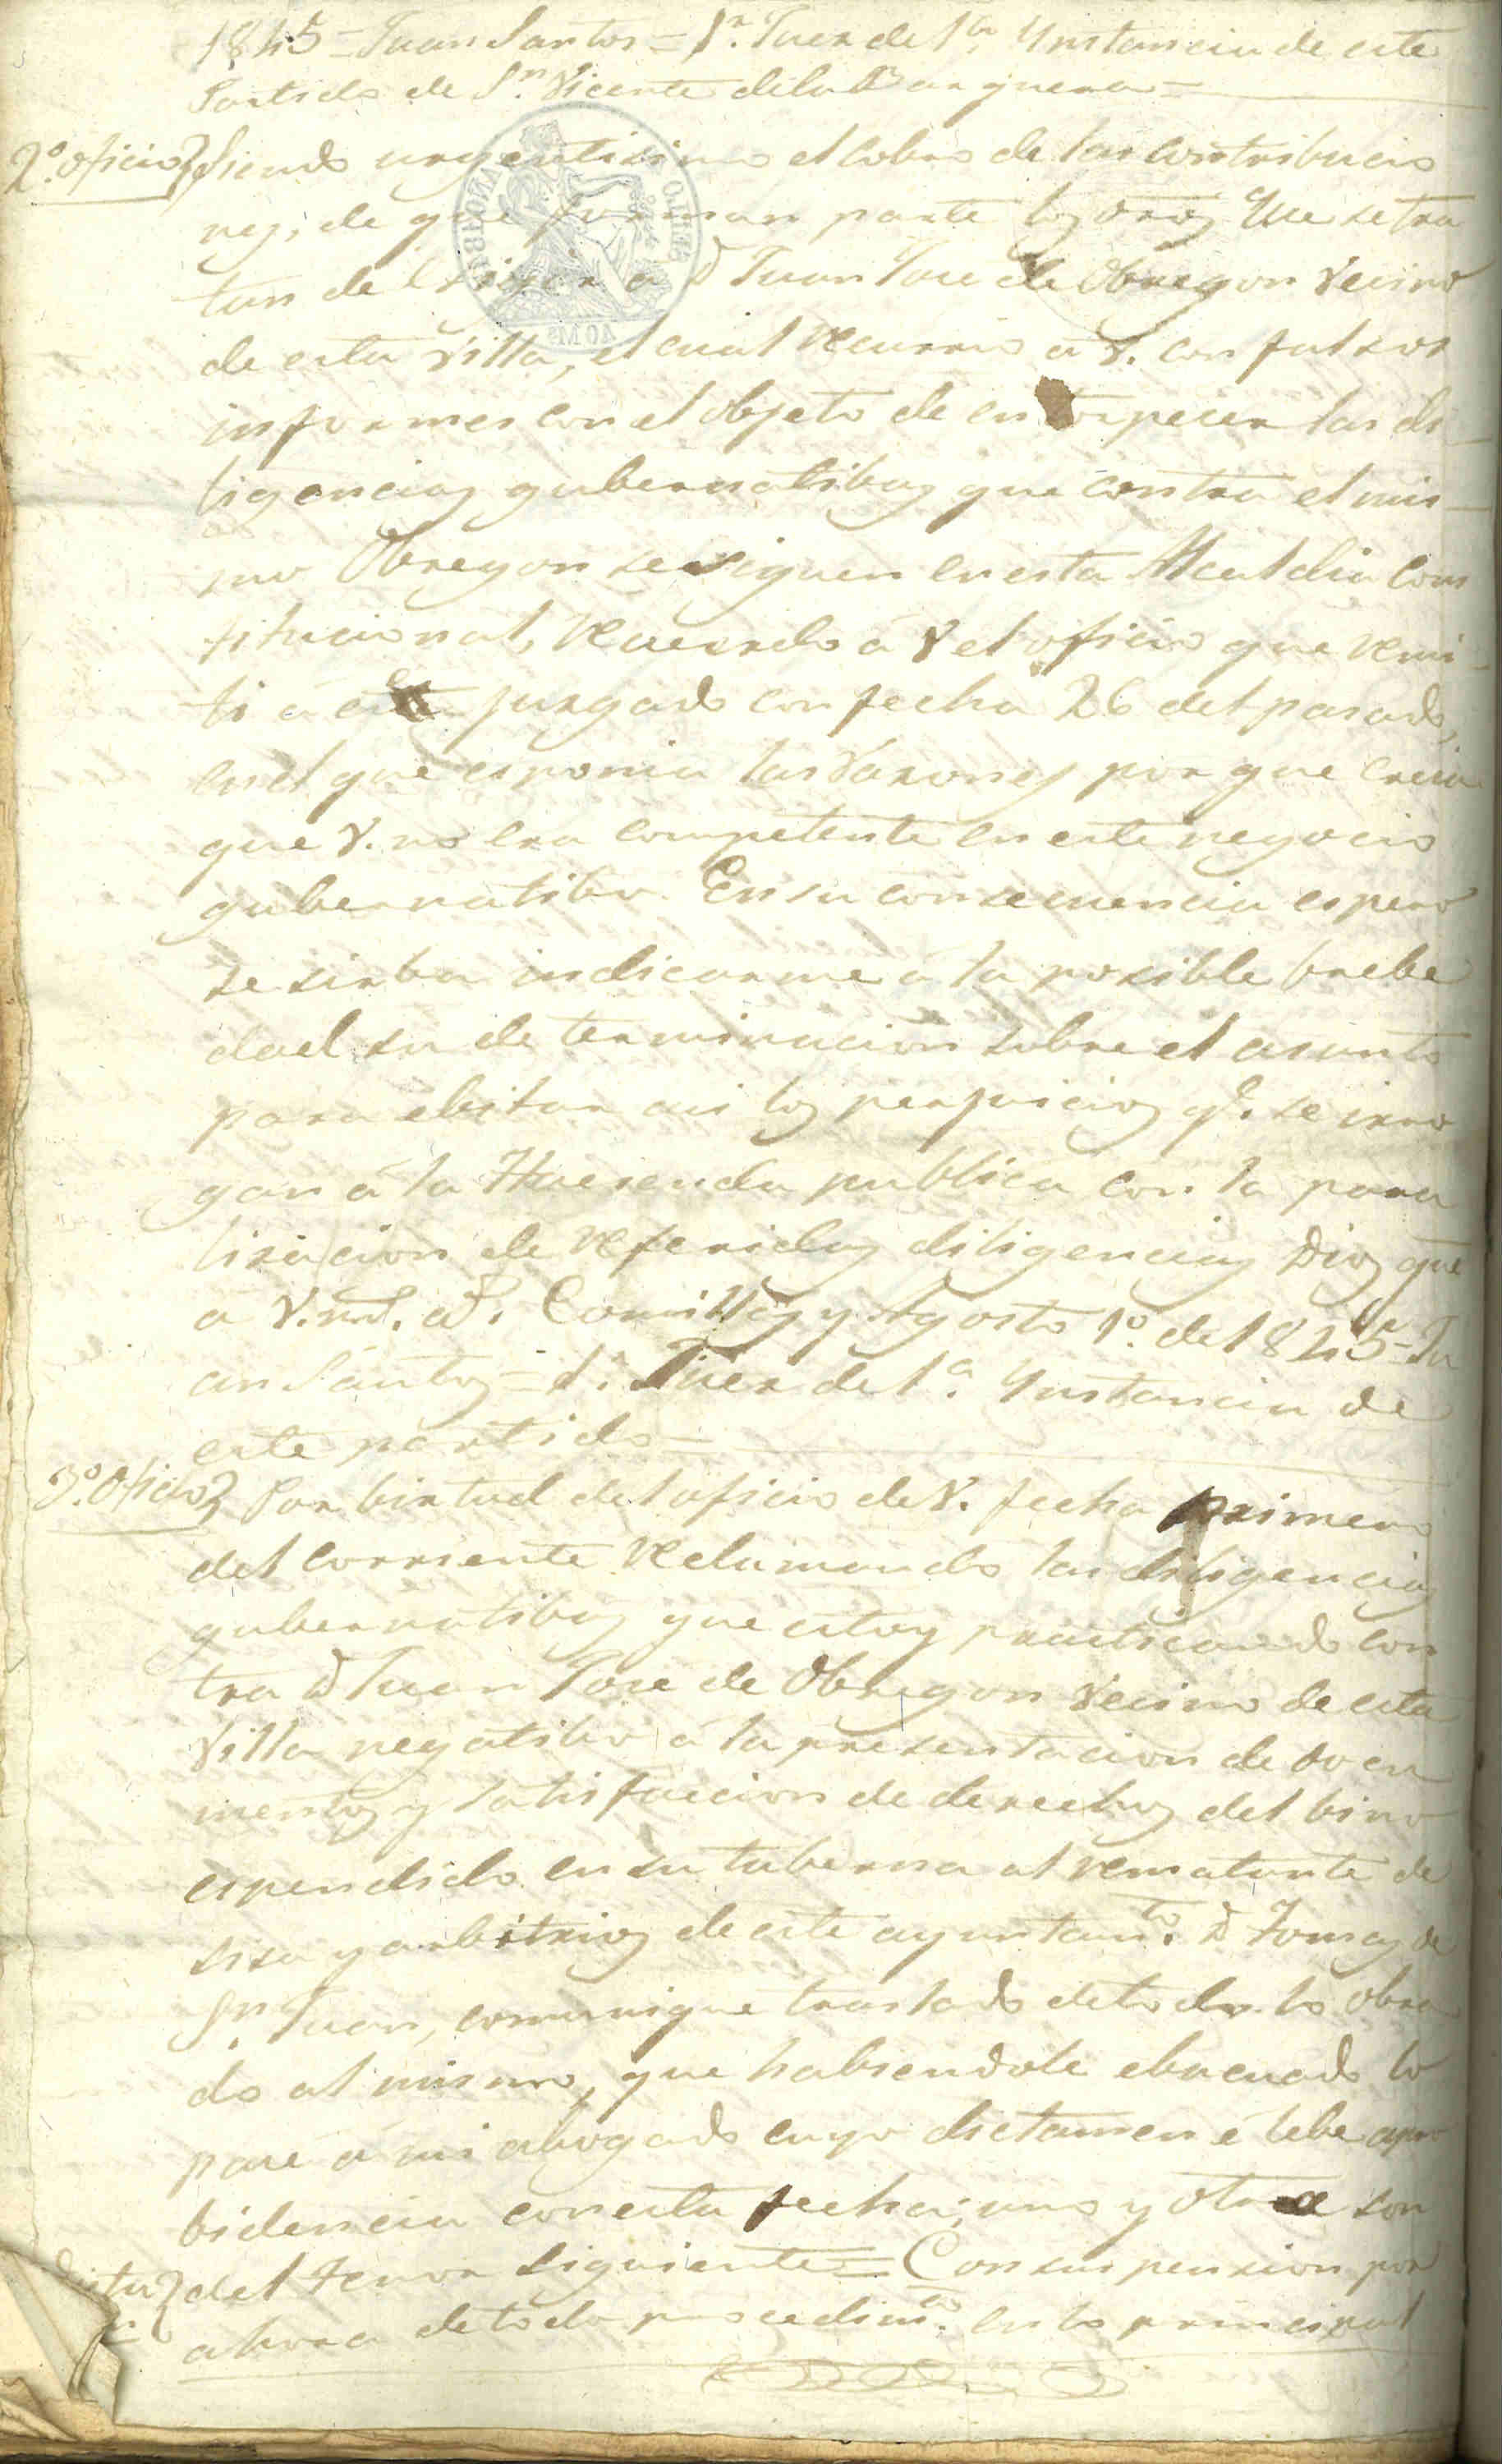 1845 = Juan Santos = Sr. Juez de 1ª Ynstancia de este
Partido de Sn. Vicente dela Barquera =
2º. oficio} Siendo urgentisimo el cobro de las contribucio
nes, de que forman parte los dros que se tra
tan de exigir a Dn Juan Jose de Obregon vecino
de esta villa, el cual recurrio a V. con falsos
informes con el objeto de entorpecer las di-
ligencias gubernatibas que contra el mis-
mo Obregon se siguen en esta Alcaldia Cons
titucional, recuerdo á V el oficio que remi-
ti á ese juzgado con fecha 26 del pasado,
en el que esponia las razones por que creia
que V. no era competente en este negocio
gubernatibo. En su consecuencia espero
se sirba indicarme á la posible brebe
dad su determinacion sobre el asunto
para ebitar asi los perjuicios qe. se irro
gan á la Hacienda publica con la para
lizacion de referidas diligencias Dios gue
a V. ms. as. Comillas y Agosto 1º. de 1845 = Ju
an Santos = Sr. Juez de 1ª. Ynstancia de
este partido =
3º. Oficio} Por birtud del oficio de V. fecha primero
del corriente reclamando las diligencias
gubernatibas que estoy practicando con
tra Dn Juan Jose de Obregon vecino de esta
villa negatibo á la presentacion de docu
mentos y satisfaccion de derechos del bino
espendido en su taberna al rematante de
sisa y arbitrios de este ayuntamto. Dn Tomas de
Sn. Juan, comunique traslado de todo lo obra
do al mismo, que habiendole ebacuado lo
pasé á mi abogado cuyo dictamen é llebe a pro
bidencia con esta fecha; uno y otra son
del tenor siguiente = Con suspension por
ahora de todo procedimto. en lo principal